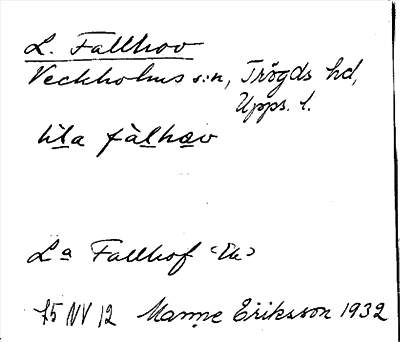 L. Fallhov
Veckholms s:n, Trögds hd,
Upps. l.
lìla fàlhav
La Fallhof
75 NV 12 Manne Eriksson 1932